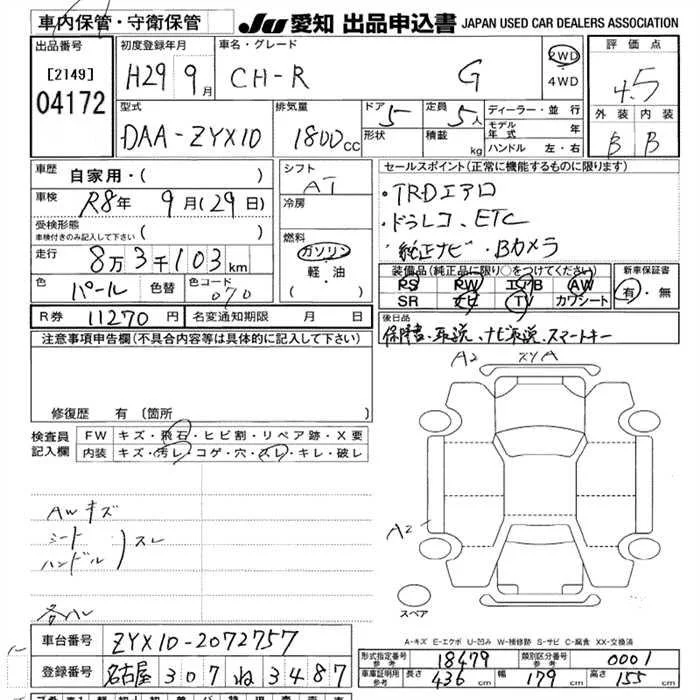 車内保管・守衛保管
JU 愛知 出品申込書 JAPAN USED CAR DEALERS ASSOCIATION
出品番号 初度登録年月 車名・グレード 2WD 評価点
[2149] H29 9月 CH-R G 4WD 4.5
04172 型式 排気量 ドア 5 定員 5人 ディーラー・並行 外装 内装
DAA-ZYX10 1800cc 形状 積載 kg モデル年式 年 B B
ハンドル 左・右
車歴 自家用・( ) シフト AT セールスポイント(正常に機能するものに限ります)
車検 R8年 9月(29日) 冷房 ・TRDエアロ
受検形態 ・ドラレコ、ETC
車検付きのみ記入して下さい 燃料 ・純正ナビ・Bカメラ
走行 8万3千103km ガソリン
軽・油 装備品(純正品に限り○をつけてください) 新車保証書
色 パール 色替 色コード 070 ・( ) PS PW エアB AW 有・無
SR ナビ TV カワシート
R券 11270円 名変通知期限 月 日 後日品
注意事項申告欄(不具合内容等は具体的に記入して下さい) 保障書、取説、ナビ取説、スマートキー
A2 XYA
修復歴 有〔箇所
検査員 FW キズ・飛石・ヒビ割・リペア跡・X要
記入欄 内装 キズ・汚レ・コゲ・穴・スレ・キレ・破レ
AWキズ
シート
ハンドル スレ
A2
スペア
A-キズ E-エクボ U-凹み W-補修跡 S-サビ C-腐食 XX-交換済
車台番号 ZYX10-2072757
登録番号 名古屋 307 ね 3487
形式指定番号 参考 18479 類別区分番号 参考 0001
車庫証明用 参考 長さ 436cm 幅 179cm 高さ 155cm